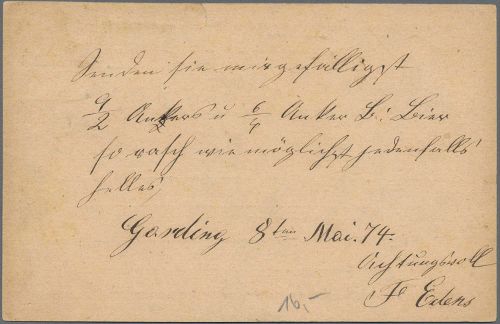 Senden sie mir gefälligst
9/2 Ankers u 6/4 Anker B. Bier
so rasch wie möglichst jedenfalls
helles,
Garding 8ten Mai. 74.
Achtungsvoll
F Edens
16,-